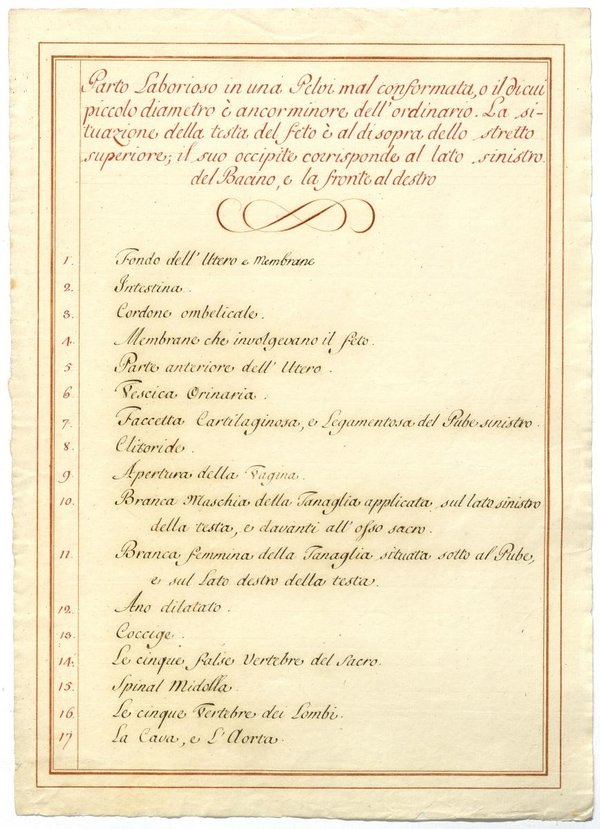 Parto Laborioso in una Pelvi mal conformata, o il di cui
piccolo diametro è ancor minore dell'ordinario. La si-
tuazione della testa del feto è al di sopra dello stretto
superiore; il suo occipite corrisponde al lato sinistro
del Bacino, e la fronte al destro
1. Fondo dell'Utero e Membrane
2. Intestina.
3. Cordone ombelicale.
4. Membrane che involgevano il feto.
5. Parte anteriore dell'Utero.
6. Vescica Orinaria.
7. Faccetta Cartilaginosa, e Legamentosa del Pube sinistro.
8. Clitoride.
9. Apertura della Vagina.
10. Branca Maschia della Tanaglia applicata, sul lato sinistro
della testa, e davanti all'osso sacro.
11. Branca femmina della Tanaglia situata sotto al Pube,
e sul Lato destro della testa.
12. Ano dilatato.
13. Coccige.
14. Le cinque false Vertebre del Sacro.
15. Spinal Midolla.
16. Le cinque Vertebre dei Lombi.
17 La Cava, e L'Aorta.